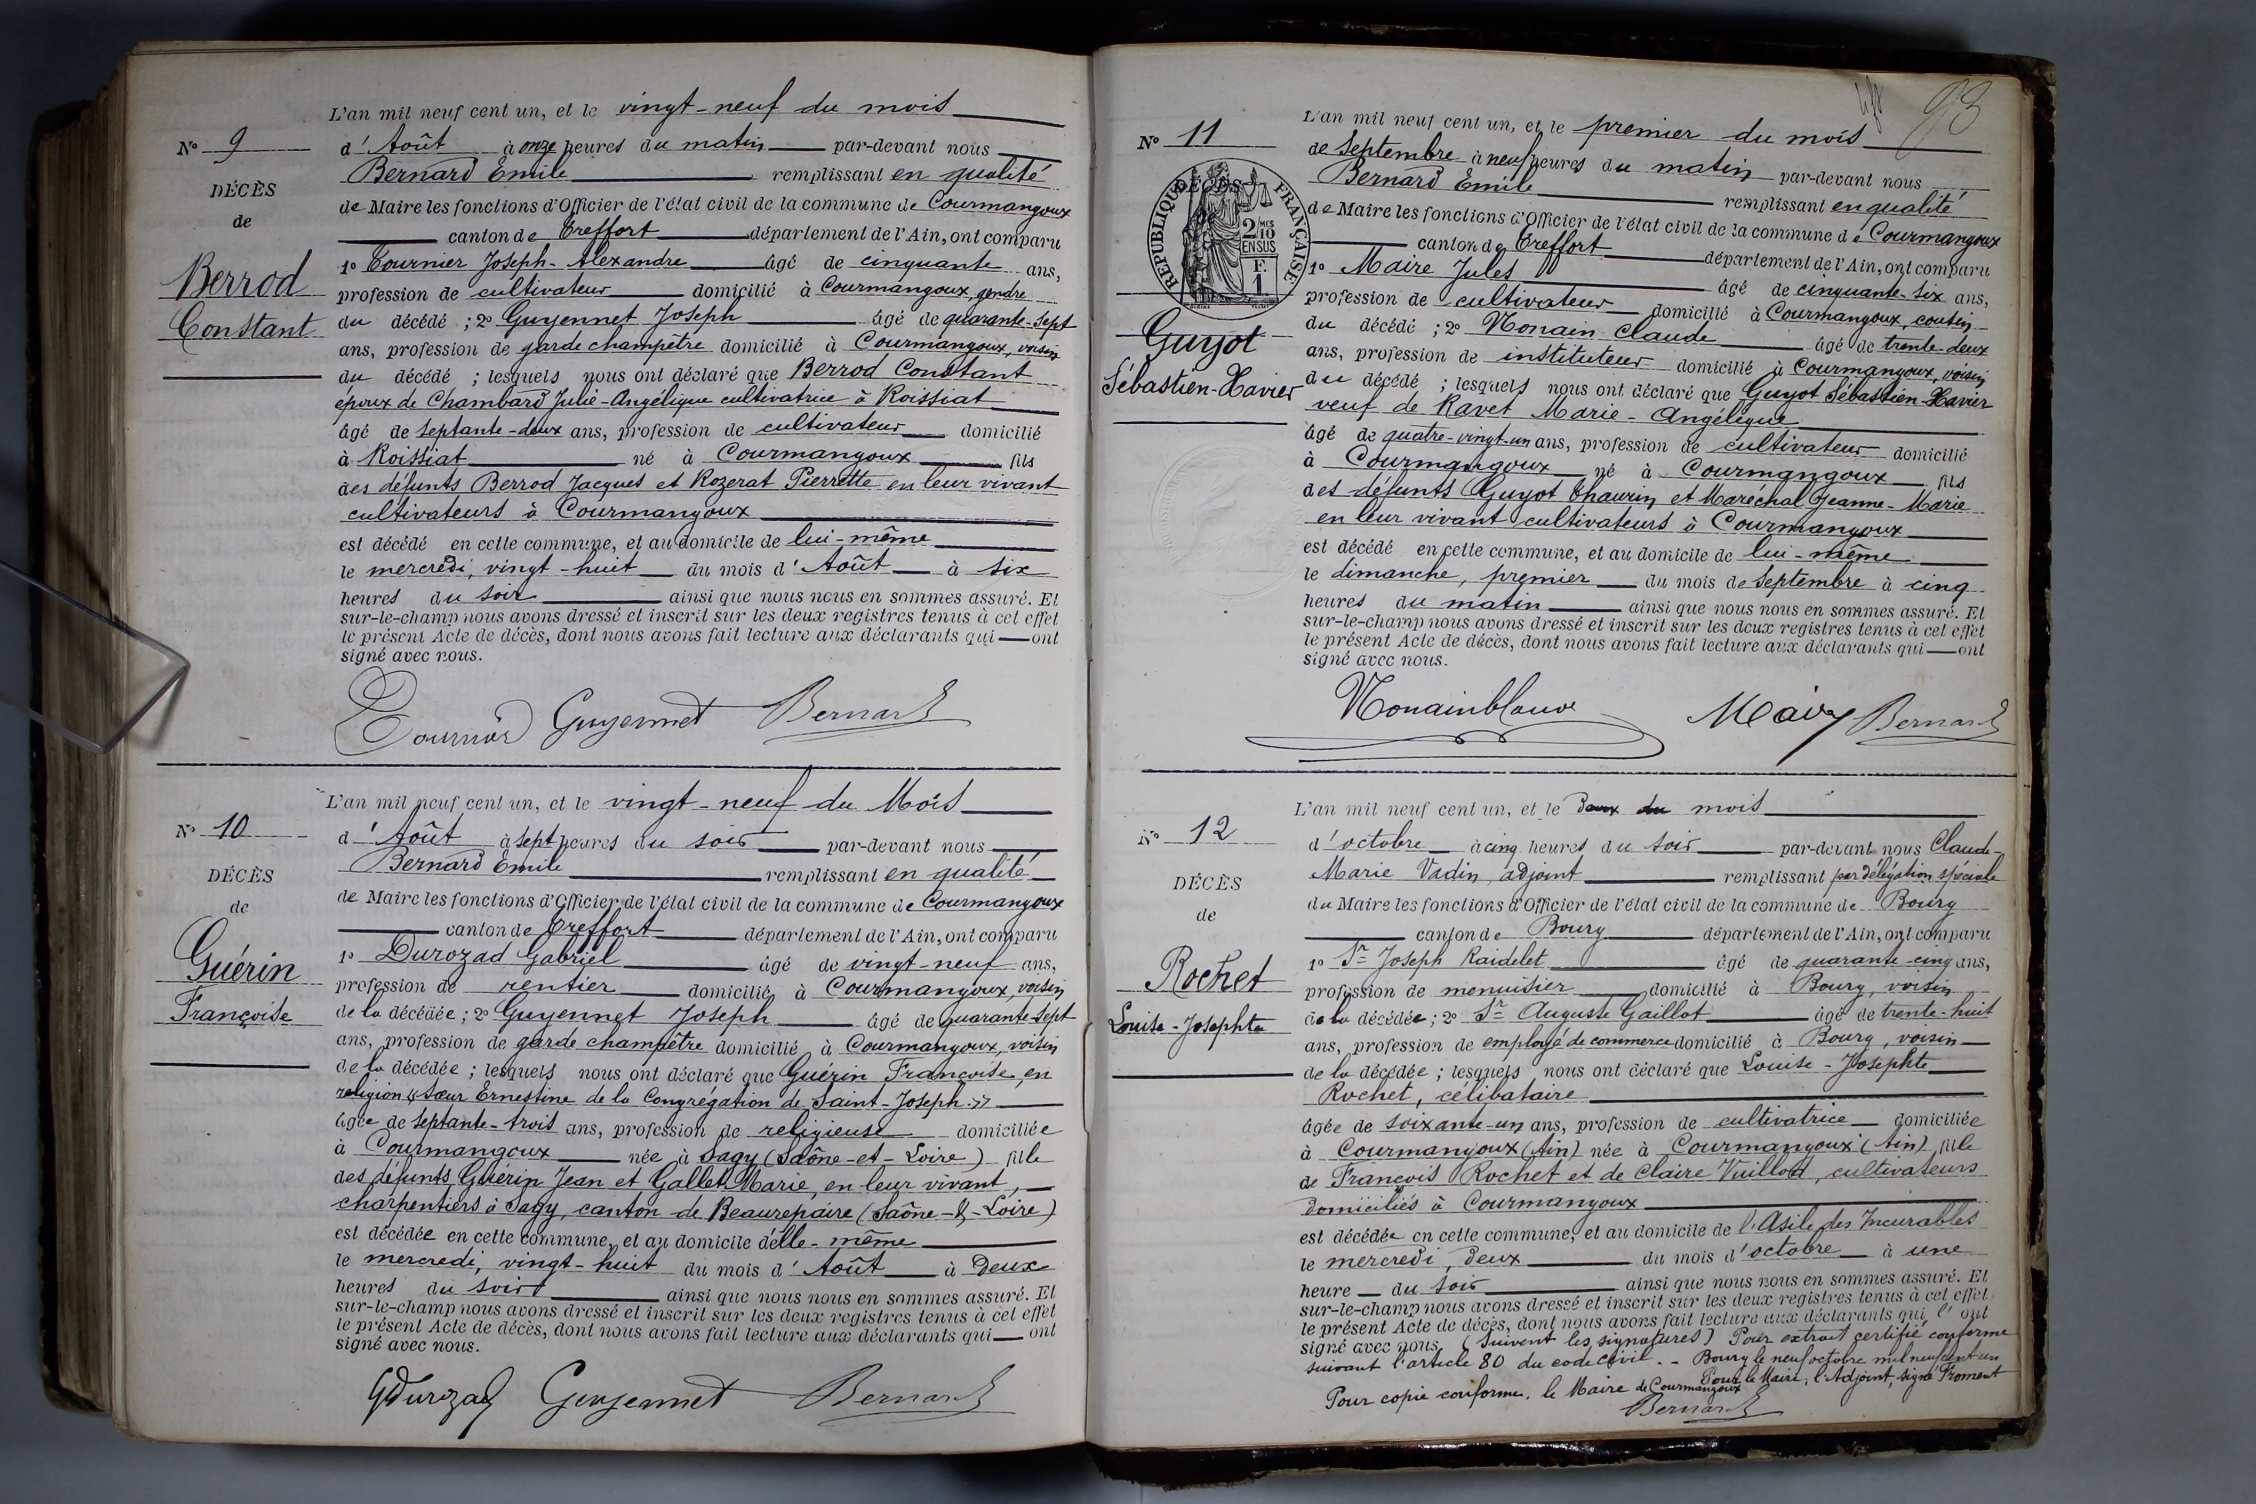 L'an mil neuf cent un, et le vingt-neuf du mois
N° 9
d'Août à onze heures du matin par-devant nous
Bernard Emile remplissant en qualité
DÉCÈS
de Maire les fonctions d'Officier de l'état civil de la commune de Courmangoux
de
canton de Treffort département de l'Ain, ont comparu
1° Tournier Joseph-Alexandre âgé de cinquante ans,
Berrod
profession de cultivateur domicilié à Courmangoux, gendre
Constant
du décédé ; 2° Guyennet Joseph âgé de quarante-sept
ans, profession de garde champêtre domicilié à Courmangoux, voisin
du décédé ; lesquels nous ont déclaré que Berrod Constant
époux de Chambard Julie-Angélique cultivatrice à Roissiat
âgé de septante-deux ans, profession de cultivateur domicilié
à Roissiat né à Courmangoux fils
des défunts Berrod Jacques et Rozerat Pierrette en leur vivant
cultivateurs à Courmangoux
est décédé en cette commune, et au domicile de lui-même
le mercredi, vingt-huit du mois d'Août à six
heures du soir ainsi que nous nous en sommes assuré. Et
sur-le-champ nous avons dressé et inscrit sur les deux registres tenus à cet effet
le présent Acte de décès, dont nous avons fait lecture aux déclarants qui ont
signé avec nous.
Tournier Guyennet Bernard
L'an mil neuf cent un, et le vingt-neuf du Mois
N° 10
d'Août à sept heures du soir par-devant nous
Bernard Emile remplissant en qualité
DÉCÈS
de Maire les fonctions d'Officier de l'état civil de la commune de Courmangoux
de
canton de Treffort département de l'Ain, ont comparu
1° Durozad Gabriel âgé de vingt-neuf ans,
Guérin
profession de rentier domicilié à Courmangoux, voisin
Françoise
de la décédée ; 2° Guyennet Joseph âgé de quarante-sept
ans, profession de garde champêtre domicilié à Courmangoux, voisin
de la décédée ; lesquels nous ont déclaré que Guérin Françoise, en
religion « Sœur Ernestine de la Congrégation de Saint-Joseph »
âgée de septante-trois ans, profession de religieuse domiciliée
à Courmangoux née à Sagy (Saône-et-Loire) fille
des défunts Guérin Jean et Gallet Marie, en leur vivant,
charpentiers à Sagy, canton de Beaurepaire (Saône-&-Loire)
est décédée en cette commune, et au domicile d'elle-même
le mercredi, vingt-huit du mois d'Août à Deux
heures du soir ainsi que nous nous en sommes assuré. Et
sur-le-champ nous avons dressé et inscrit sur les deux registres tenus à cet effet
le présent Acte de décès, dont nous avons fait lecture aux déclarants qui ont
signé avec nous.
GDurozad Guyennet Bernard
93
L'an mil neuf cent un, et le premier du mois
N° 11
de Septembre à neuf heures du matin par-devant nous
Bernard Emile remplissant en qualité
DÉCÈS
RÉPUBLIQUE FRANÇAISE
2/10 MES EN SUS
F. 1
de Maire les fonctions d'Officier de l'état civil de la commune de Courmangoux
canton de Treffort département de l'Ain, ont comparu
1° Maire Jules âgé de cinquante-six ans,
profession de cultivateur domicilié à Courmangoux, cousin
Guyot
du décédé ; 2° Nonain Claude âgé de trente-deux
ans, profession de instituteur domicilié à Courmangoux, voisin
Sébastien-Xavier
du décédé ; lesquels nous ont déclaré que Guyot Sébastien-Xavier
veuf de Ravet Marie-Angélique
âgé de quatre-vingt-un ans, profession de cultivateur domicilié
à Courmangoux né à Courmangoux fils
des défunts Guyot Thaurin et Maréchal Jeanne-Marie
en leur vivant cultivateurs à Courmangoux
est décédé en cette commune, et au domicile de lui-même
le dimanche, premier du mois de Septembre à cinq
heures du matin ainsi que nous nous en sommes assuré. Et
sur-le-champ nous avons dressé et inscrit sur les deux registres tenus à cet effet
le présent Acte de décès, dont nous avons fait lecture aux déclarants qui ont
signé avec nous.
Maire Bernard
L'an mil neuf cent un, et le deux du mois
N° 12
d'octobre à cinq heures du soir par-devant nous Claude-
Marie Vadin, adjoint remplissant par délégation spéciale
DÉCÈS
du Maire les fonctions d'Officier de l'état civil de la commune de Bourg
de
canton de Bourg département de l'Ain, ont comparu
1° Sr Joseph Raidelet âgé de quarante-cinq ans,
Rochet
profession de menuisier domicilié à Bourg, voisin
Louise-Josephte
de la décédée ; 2° Sr Auguste Gaillot âgé de trente-huit
ans, profession de employé de commerce domicilié à Bourg, voisin
de la décédée ; lesquels nous ont déclaré que Louise-Josephte
Rochet, célibataire
âgée de soixante-un ans, profession de cultivatrice domiciliée
à Courmangoux (Ain) née à Courmangoux (Ain) fille
de François Rochet et de Claire Vuillod, cultivateurs
domiciliés à Courmangoux
est décédée en cette commune, et au domicile de l'Asile des Incurables
le mercredi, deux du mois d'octobre à une
heure du soir ainsi que nous nous en sommes assuré. Et
sur-le-champ nous avons dressé et inscrit sur les deux registres tenus à cet effet
le présent Acte de décès, dont nous avons fait lecture aux déclarants qui l'ont
signé avec nous (Suivent les signatures) Pour extrait certifié conforme
suivant l'article 80 du code civil. - Bourg le neuf octobre mil neuf cent un
Pour le Maire, l'Adjoint, signé Froment
Pour copie conforme, le Maire de Courmangoux
Bernard